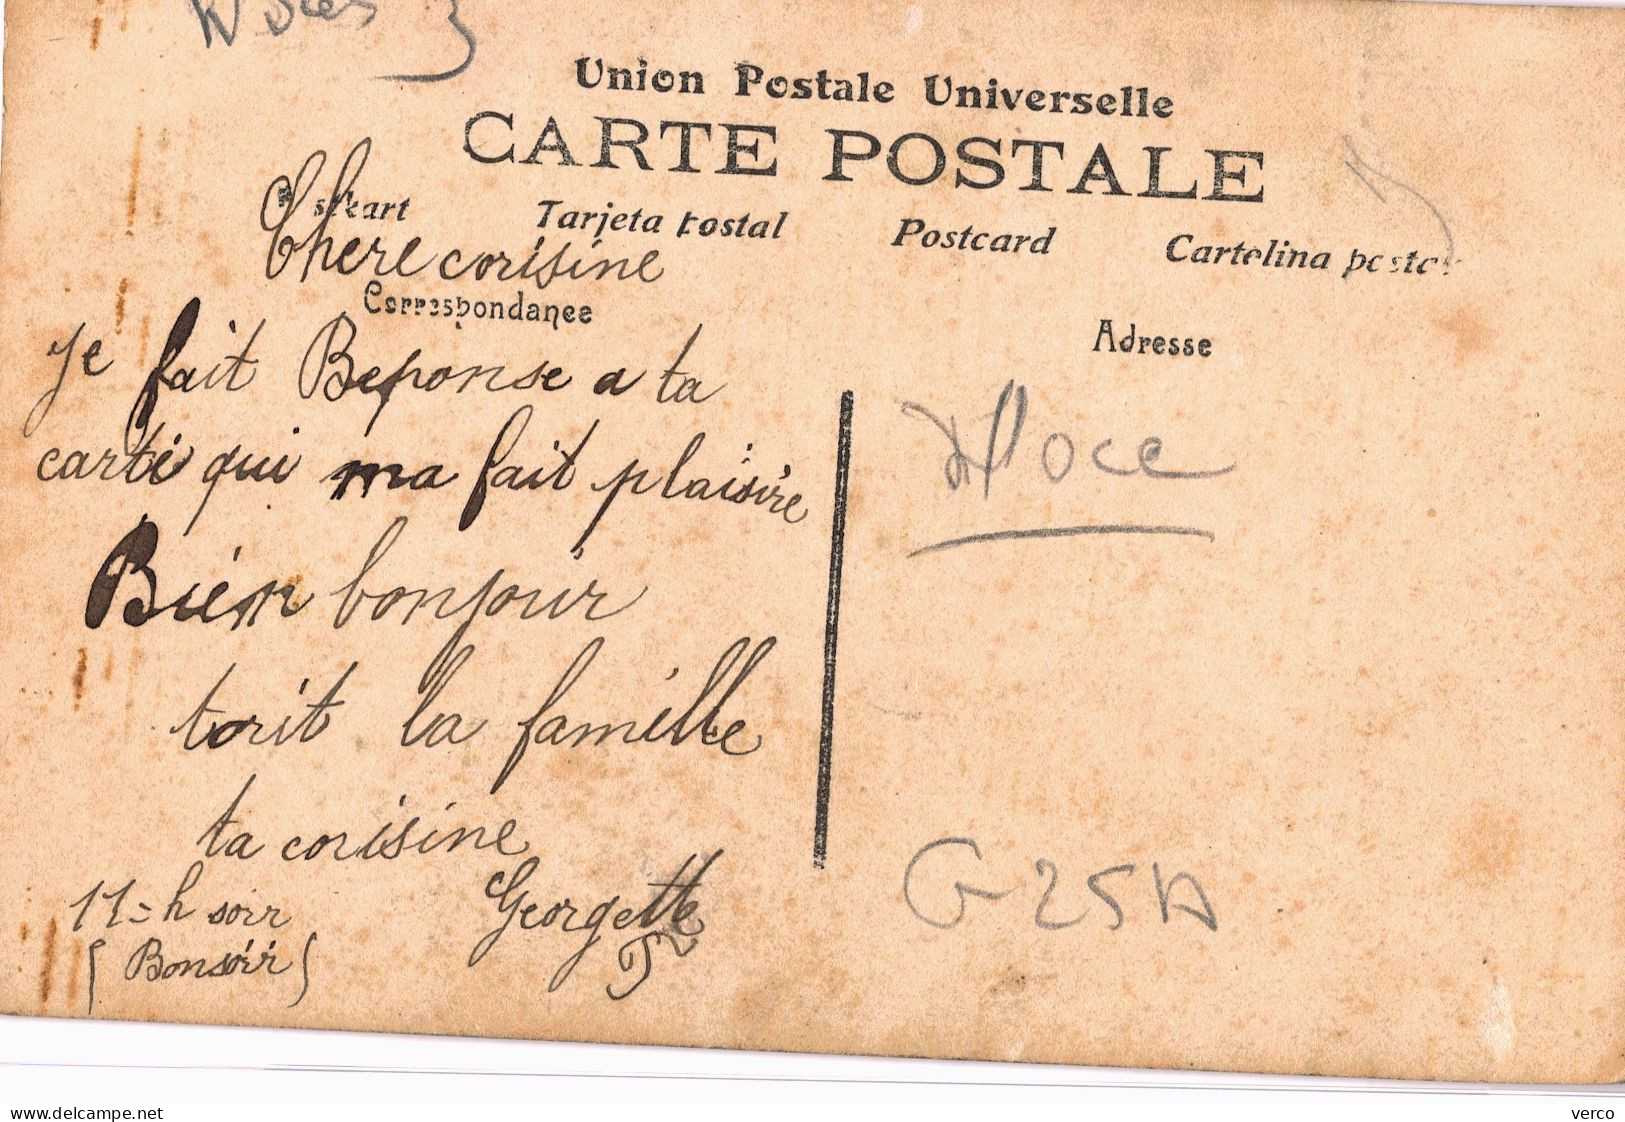 Union Postale Universelle
CARTE POSTALE
Tarjeta postal Postcard Cartolina postal
Chere corisine
Correspondance
Adresse
Je fait Beponse a ta
carte qui ma fait plaisire
Bien bonjour
torit la famille
ta corisine
11=h soir Georgette
(Bonsoir)
G 25A
verco